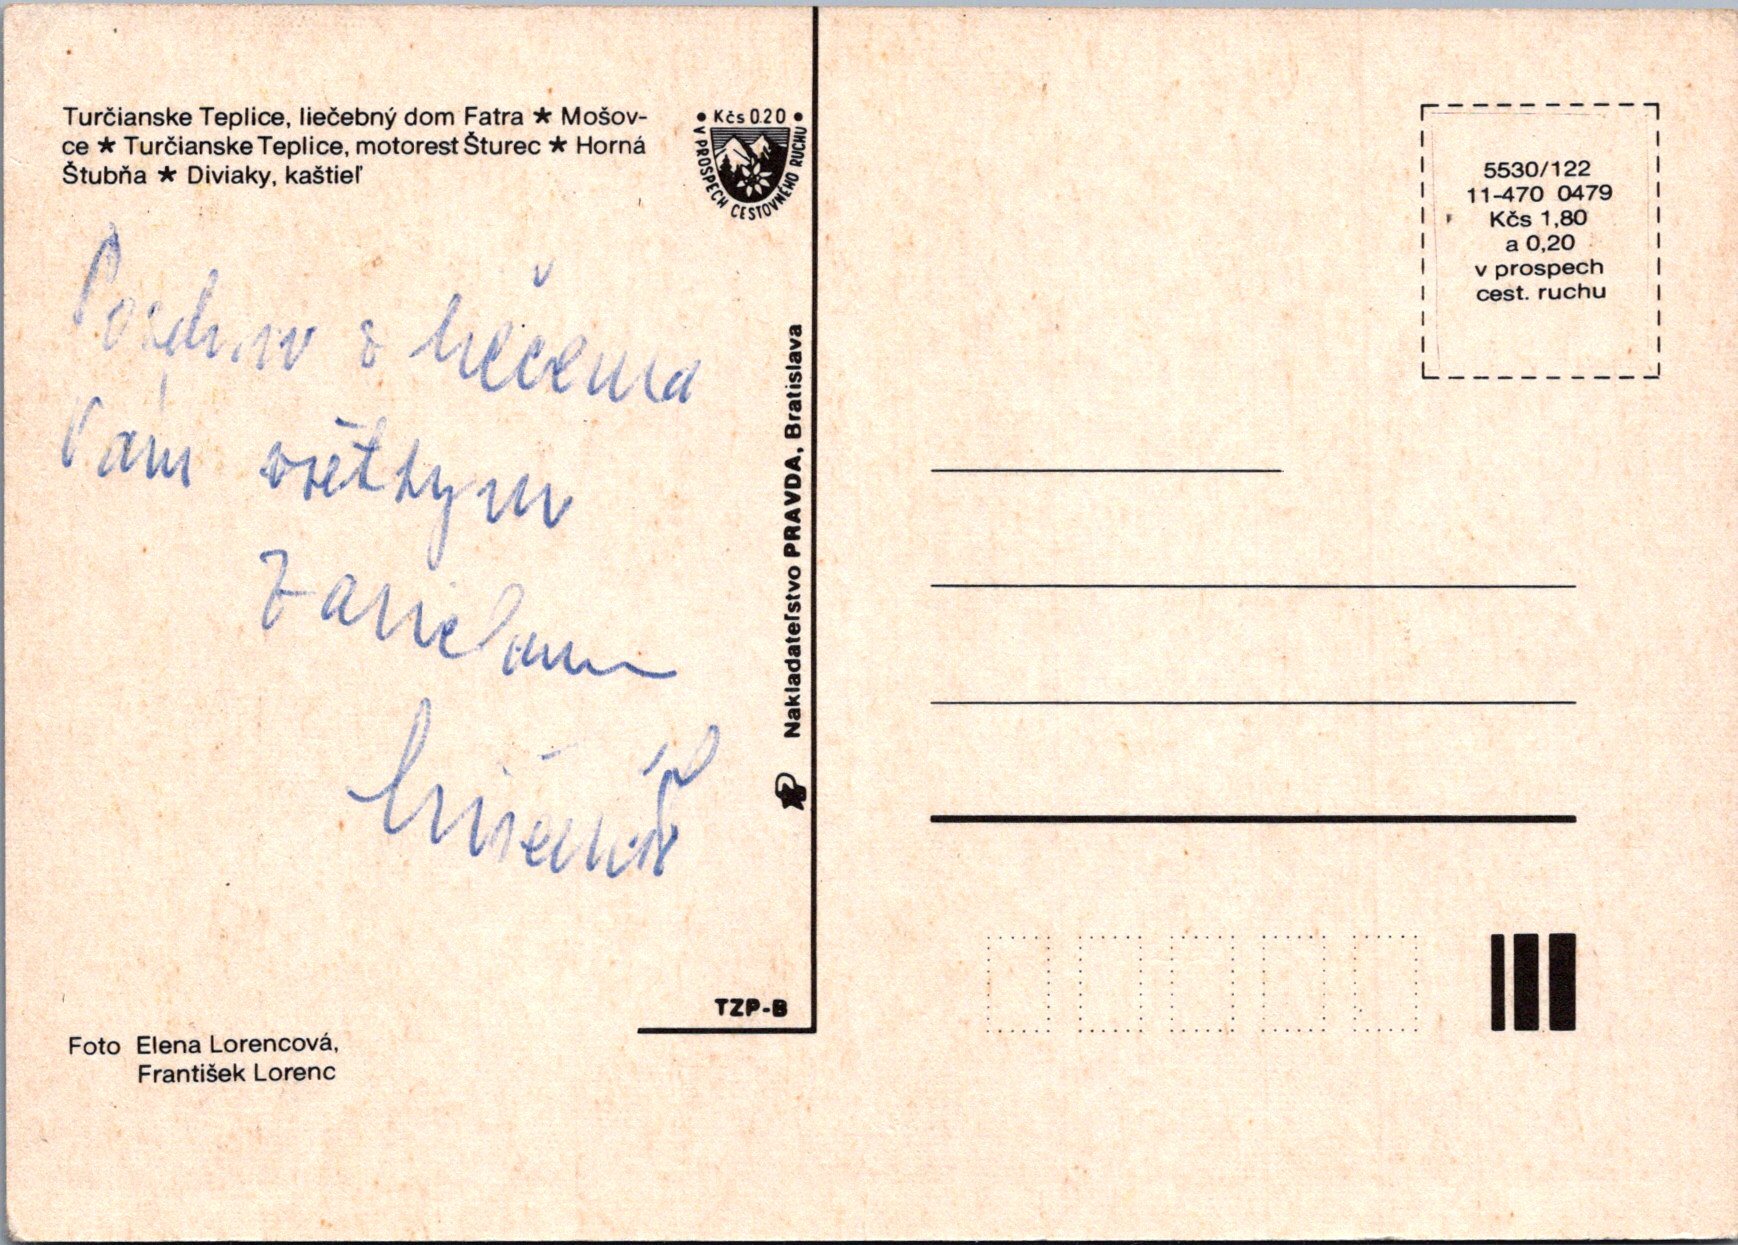 Turčianske Teplice, liečebný dom Fatra ★ Mošov-
ce ★ Turčianske Teplice, motorest Šturec ★ Horná
Štubňa ★ Diviaky, kaštieľ
• Kčs 0.20 •
V PROSPECH CESTOVNÉHO RUCHU
Pozdrav z liečenia
Vám všetkým
Nakladateľstvo PRAVDA, Bratislava
TZP-B
Foto Elena Lorencová,
František Lorenc
5530/122
11-470 0479
Kčs 1,80
a 0,20
v prospech
cest. ruchu